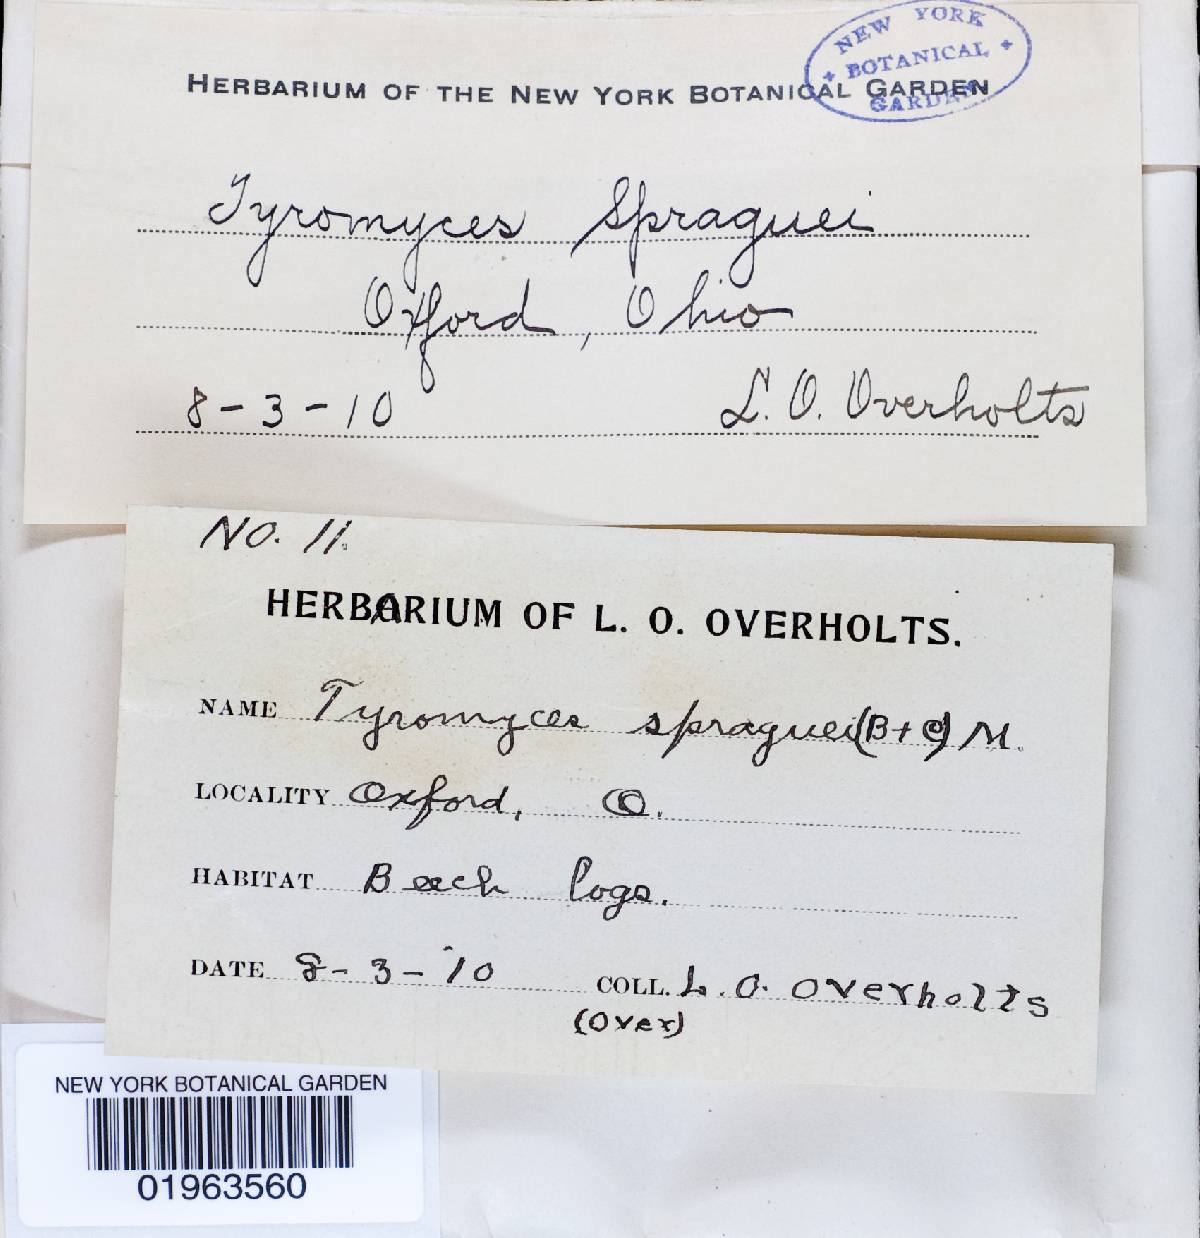 NEW YORK
BOTANICAL
GARDEN
HERBARIUM OF THE NEW YORK BOTANICAL GARDEN
Tyromyces Spraguei
Oxford, Ohio
8-3-10 L. O. Overholts
No. 11.
HERBARIUM OF L. O. OVERHOLTS.
NAME Tyromyces spraguei (B+C) M.
LOCALITY Oxford, O.
HABITAT Beech logs.
DATE 8-3-10 COLL. L. O. Overholts
(Over)
NEW YORK BOTANICAL GARDEN
01963560